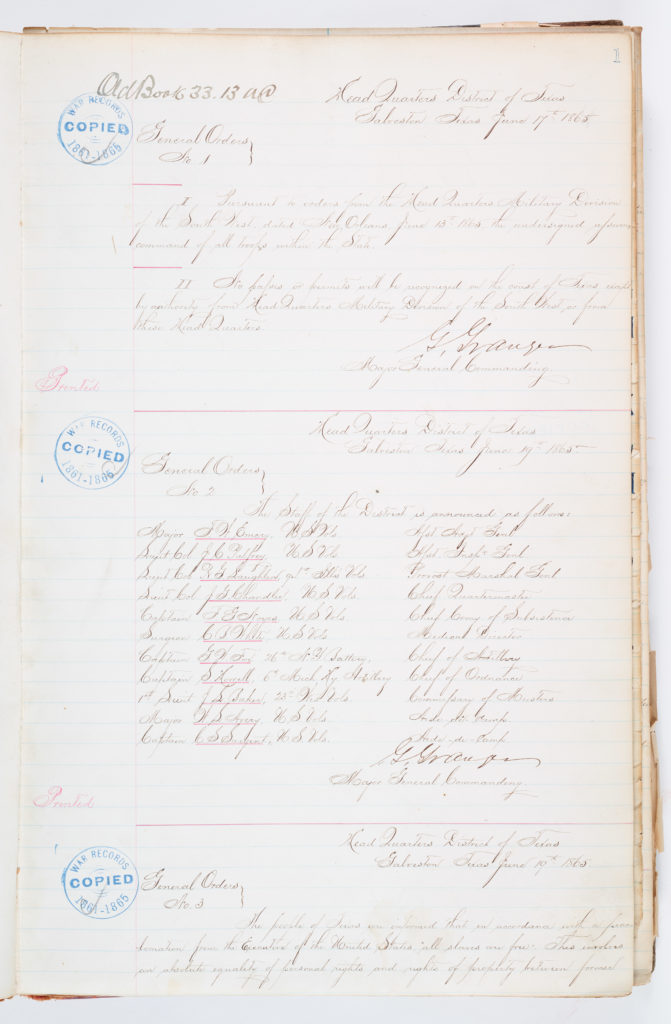 1
Od Book 33. 13 a@
WAR RECORDS
COPIED
1861-1865
Head Quarters District of Texas
Galveston Texas June 17th 1865.
General Orders
No. 1
I Pursuant to orders from the Head Quarters Military Division
of the South West, dated New Orleans, June 13th 1865, the undersigned assumes
command of all troops within the State.
II No passes or permits will be recognized on the coast of Texas except
by authority from Head Quarters Military Division of the South West, or from
these Head Quarters.
G. Granger
Major General Commanding.
Printed
WAR RECORDS
COPIED
1861-1865
Head Quarters District of Texas
Galveston Texas June 19th 1865.
General Orders
No 2
The Staff of the District is announced as follows:
Major F. W. Emery, U S Vols. Asst Adjt Genl
Lieut Col J. C. Palfrey, U S Vols. Asst Inspr Genl
Lieut Col R. G. Laughlin, 94th Ills Vols. Provost Marshal Genl
Lieut Col J. G. Chandler, U S Vols. Chief Quartermaster
Captain U S Vols. Chief Comy of Subsistence
Surgeon U S Vols Medical Director
Captain 26th N. Y. Battery, Chief of Artillery
Captain S. Howell, 6th Mich. Hy. Artillery Chief of Ordnance
1st Lieut J. L. Baker, 23d Vols. Commissary of Musters
Major U S Vols. Aide-de-Camp.
Captain C S Sargent, U S Vols. Aide-de-Camp.
G. Granger
Major General Commanding.
Printed
WAR RECORDS
COPIED
1861-1865
Head Quarters District of Texas
Galveston Texas June 19th 1865.
General Orders
No. 3
The people of Texas are informed that in accordance with a procla-
mation from the Executive of the United States "all slaves are free." This involves
an absolute equality of personal rights and rights of property between former